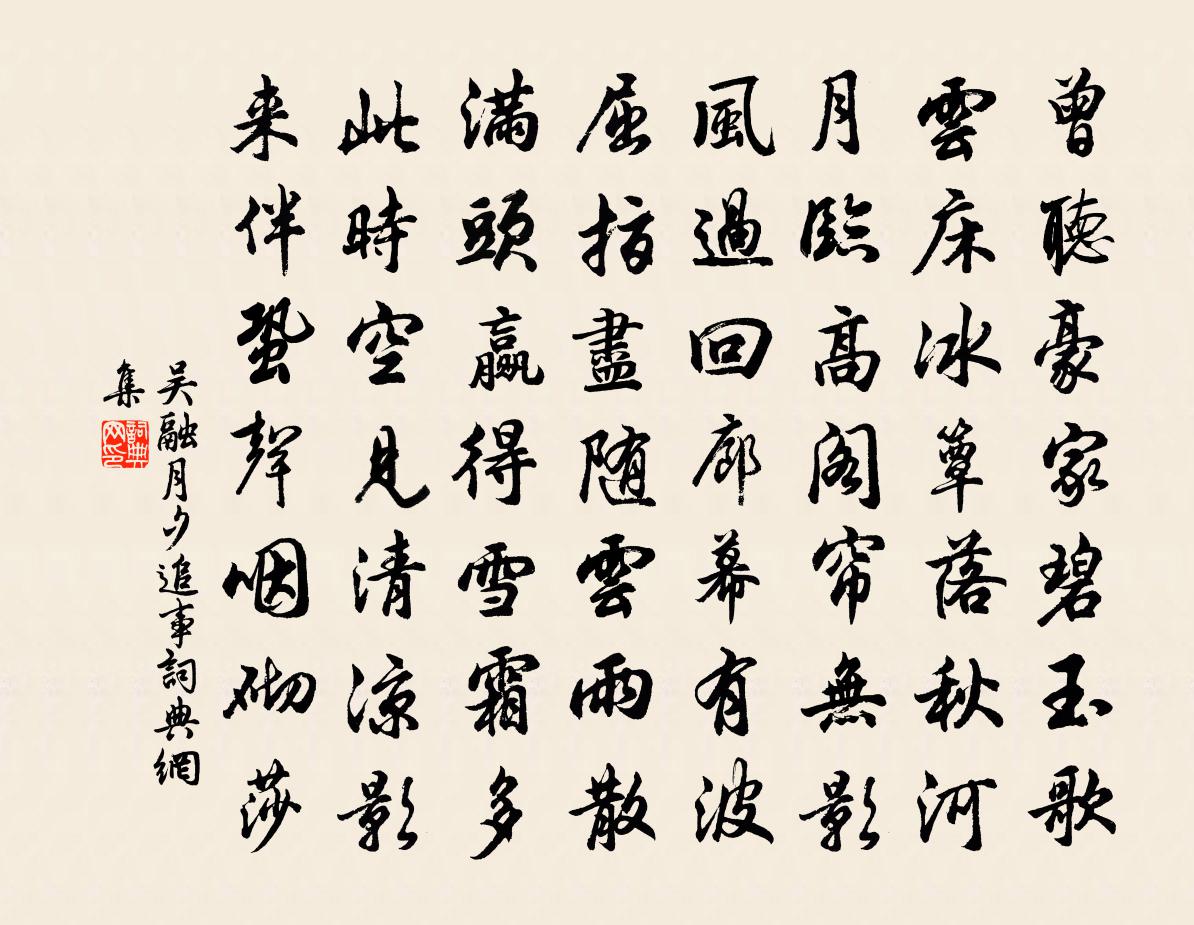 曾聽豪家碧玉歌
雲床冰簟落秋河
月臨高閣帘無影
風過回廊幕有波
屈指盡隨雲雨散
滿頭贏得雪霜多
此時空見清涼影
来伴蛩聲咽砌莎
吳融月夕追事詞典網
集
詞典网印